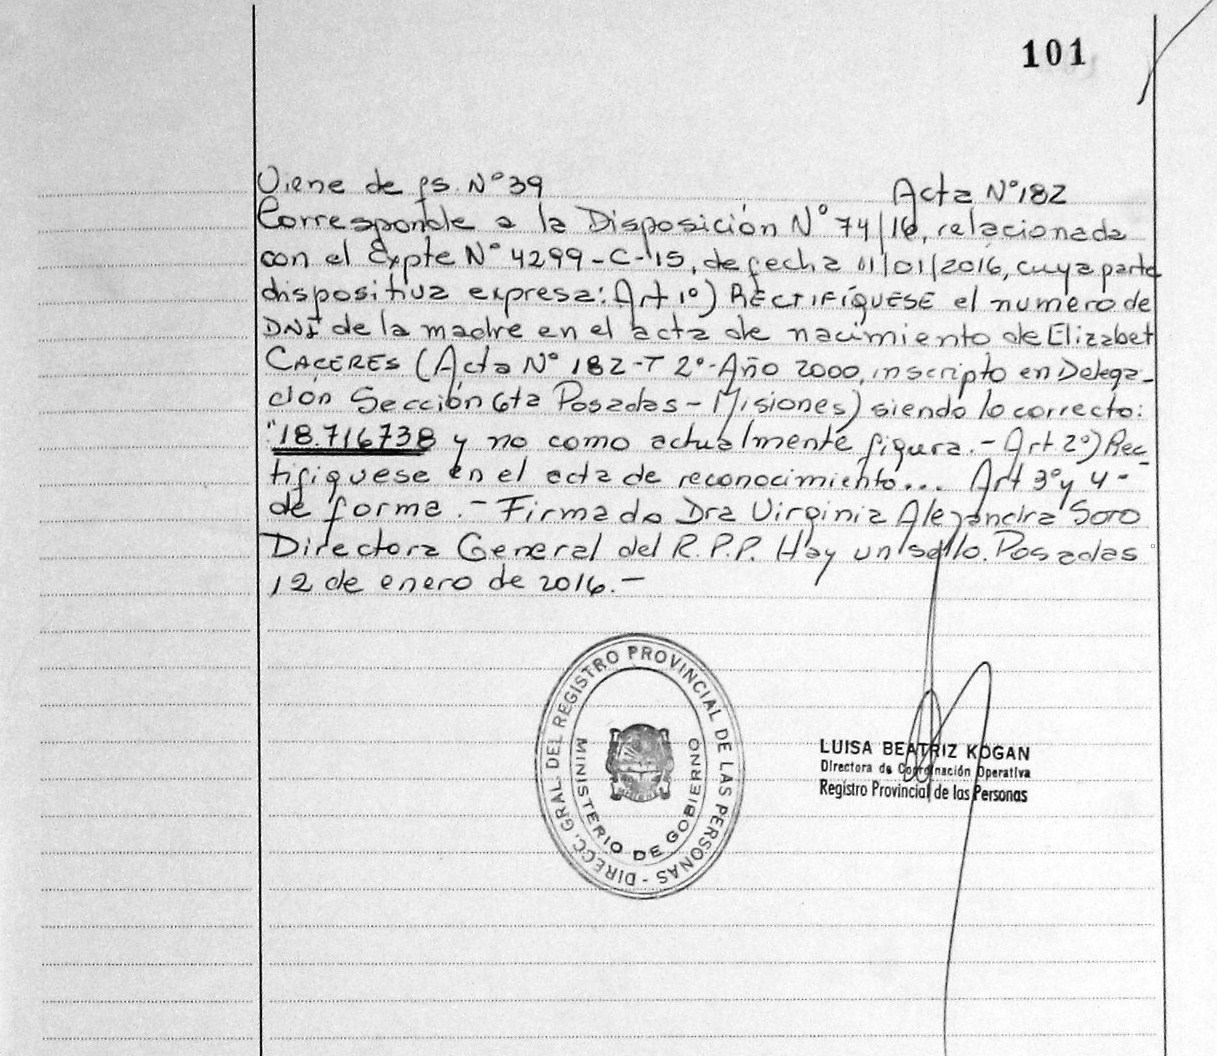 101
Viene de fs. Nº 39 Acta Nº 182
Corresponde a la Disposición Nº 74/16, relacionada
con el Expte Nº 4299-C-15, de fecha 11/01/2016, cuya parte
dispositiva expresa: Art 1º) RECTIFÍQUESE el numero de
DNI de la madre en el acta de nacimiento de Elizabet
CACERES (Acta Nº 182-T 2º-Año 2000, inscripto en Delega-
ción Sección 6ta Posadas-Misiones) siendo lo correcto:
"18.716738 y no como actualmente figura.- Art 2º) Rec-
tifiquese en el acta de reconocimiento... Art 3º y 4-
de forma.- Firmado Dra Virginia Alejandra Soro
Directora General del R.P.P. Hay un sello. Posadas
12 de enero de 2016.-
DIRECC. GRAL. DEL REGISTRO PROVINCIAL DE LAS PERSONAS -
MINISTERIO DE GOBIERNO
LUISA BEATRIZ KOGAN
Directora de Coordinación Operativa
Registro Provincial de las Personas